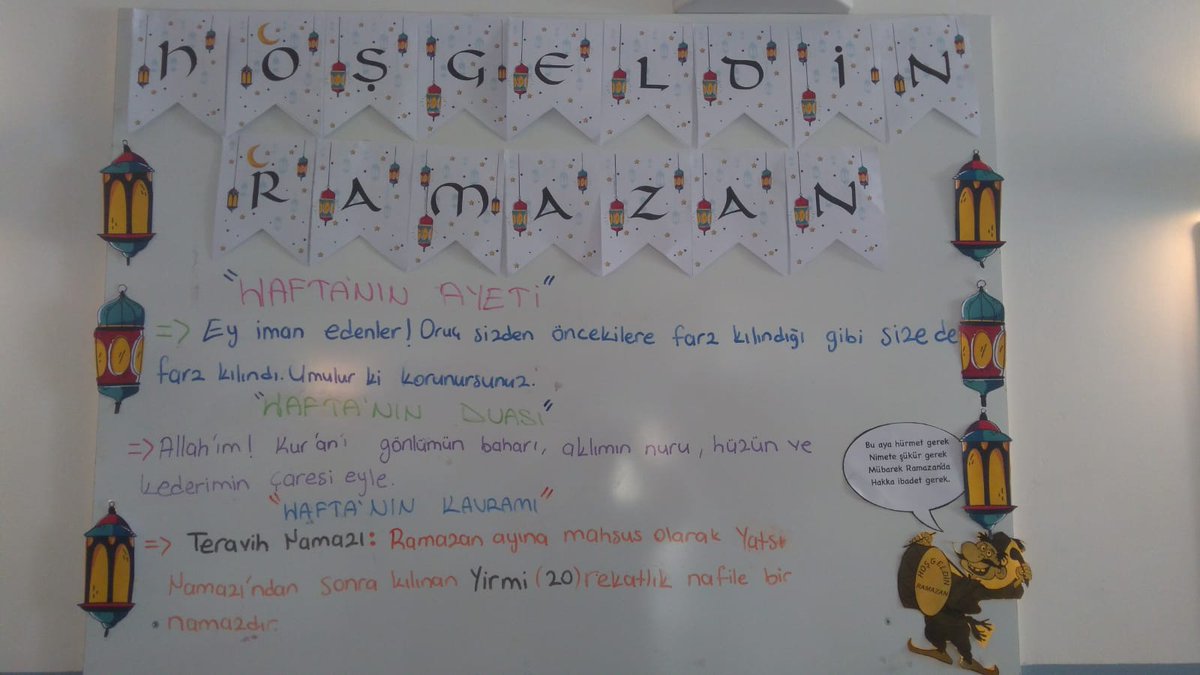 HOŞGELDİN
RAMAZAN
"HAFTANIN AYETİ"
=> Ey iman edenler! Oruç sizden öncekilere farz kılındığı gibi size de
farz kılındı. Umulur ki korunursunuz.
"HAFTA'NIN DUASI"
=> Allah'ım! Kur'an'ı gönlümün baharı, aklımın nuru, hüzün ve
kederimin çaresi eyle.
"HAFTA'NIN KAVRAMI"
=> Teravih Namazı: Ramazan ayına mahsus olarak Yatsı
Namazı'ndan sonra kılınan Yirmi (20) rekatlık nafile bir
namazdır.
Bu aya hürmet gerek
Nimete şükür gerek
Mübarek Ramazanda
Hakka ibadet gerek.
HOŞGELDİN
RAMAZAN